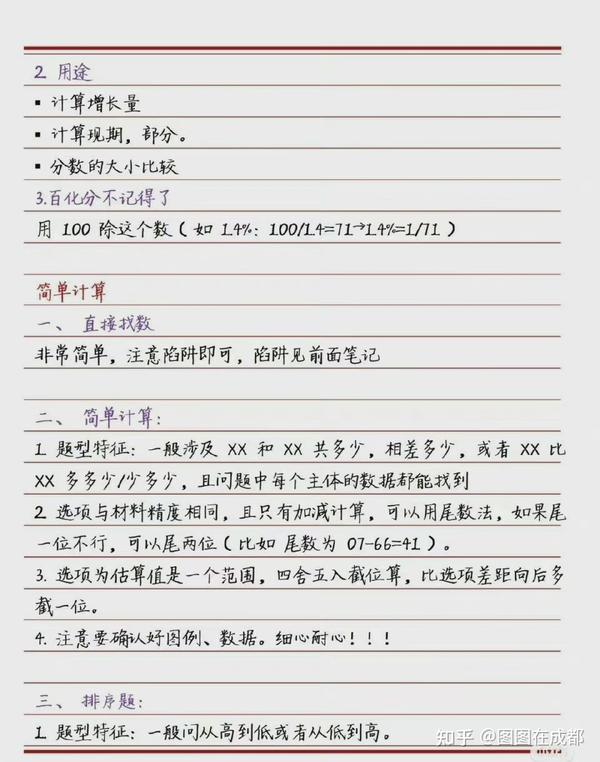 2. 用途
▪ 计算增长量
▪ 计算现期，部分。
▪ 分数的大小比较
3.百化分不记得了
用 100 除这个数（如 1.4%：100/1.4=71→1.4%=1/71）
简单计算
一、 直接找数
非常简单，注意陷阱即可，陷阱见前面笔记
二、 简单计算：
1. 题型特征：一般涉及 XX 和 XX 共多少，相差多少，或者 XX 比
XX 多多少/少多少，且问题中每个主体的数据都能找到
2. 选项与材料精度相同，且只有加减计算，可以用尾数法，如果尾
一位不行，可以尾两位（比如 尾数为 07-66=41）。
3. 选项为估算值是一个范围，四舍五入截位算，比选项差距向后多
截一位。
4. 注意要确认好图例、数据。细心耐心！！！
三、 排序题：
1. 题型特征：一般问从高到低或者从低到高。
知乎 @图图在成都